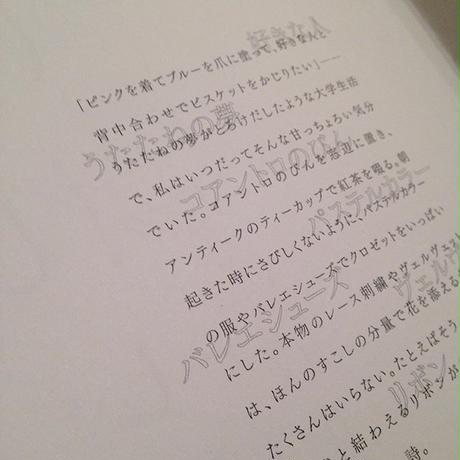 好きな人
「ピンクを着てブルーを爪に塗って、好きなんと
背中合わせでビスケットをかじりたい」──
うたたねの夢
うたたねの夢がとろけだしたような大学生活
で、私はいつだってそんな甘っちょろい気分
コアントロのびん
でいた。コアントロのびんを窓辺に置き、
アンティークのティーカップで紅茶を啜る。朝
パステルカラー
起きた時にさびしくないように、パステルカラー
の服やバレエシューズでクロゼットをいっぱい
バレエシューズ
ヴェルヴ
にした。本物のレース刺繍やヴェルヴェット
は、ほんのすこしの分量で花を添える
リボン
たくさんはいらない。たとえばそう
と結わえるリボンが
時。